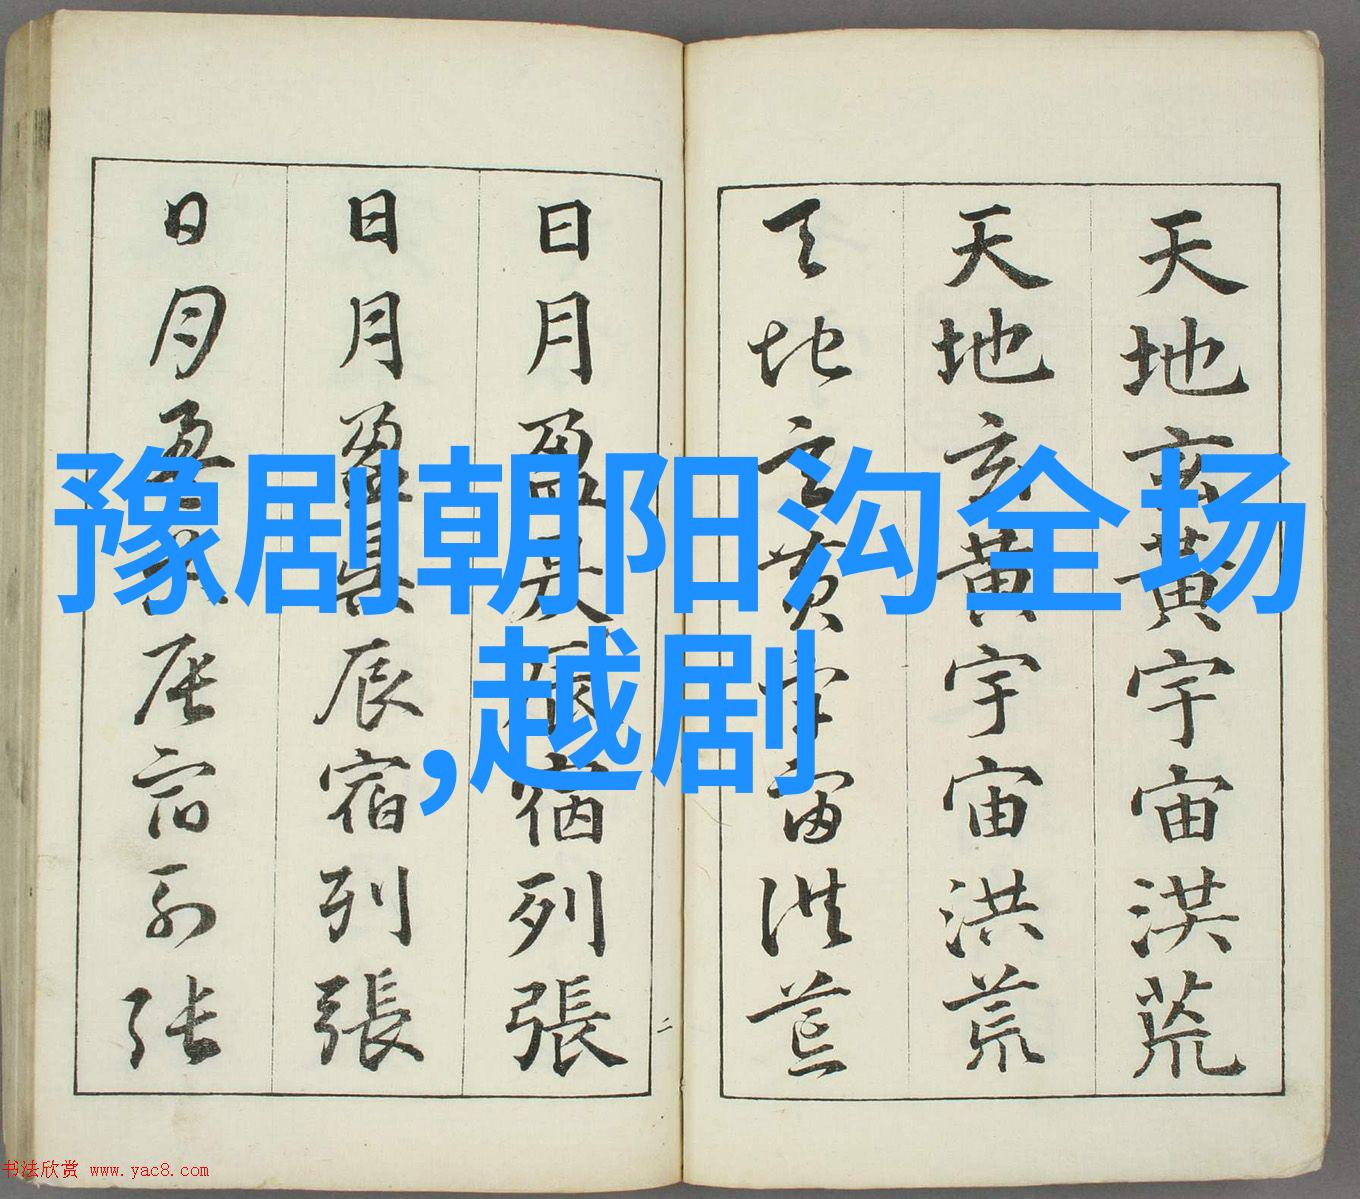 豫剧朝阳沟全场
,越剧
天地玄黃宇宙洪荒
天地玄黃宇宙洪荒
天地玄黃宇宙洪荒
二
日月盈昃辰宿列張
日月盈昃辰宿列張
日月盈昃辰宿列張
书法欣赏 www.yac8.com